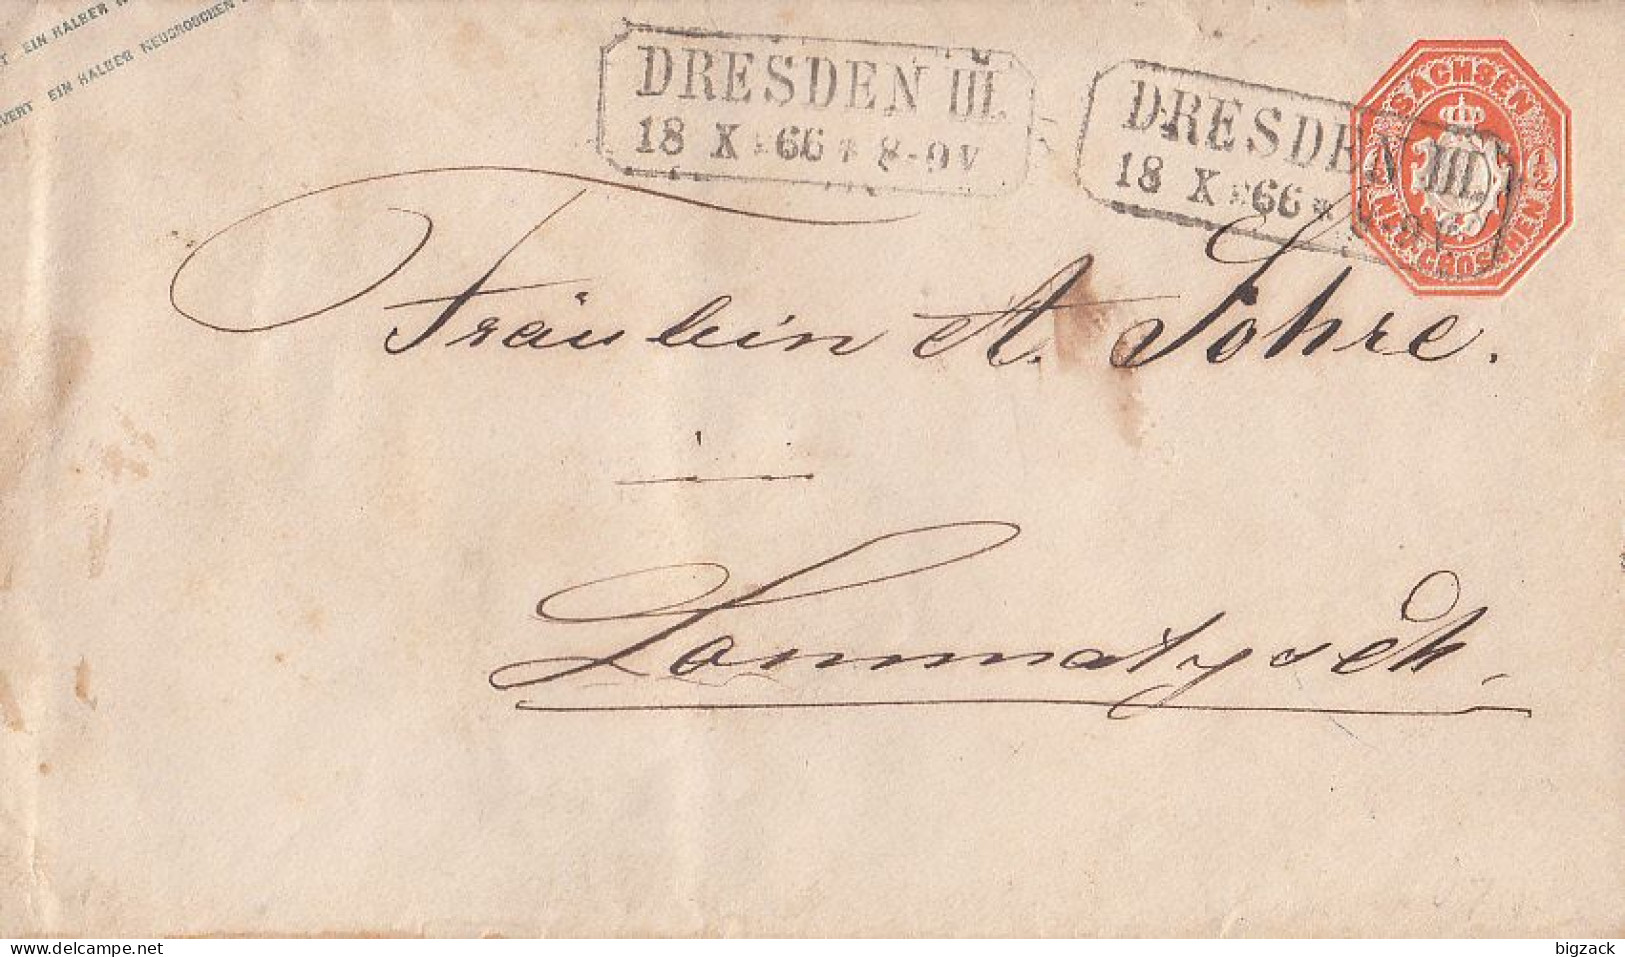 T EIN HALBER
VERT EIN HALBER NEUGROSCHEN
DRESDEN III.
18 X 66 * 8-9 V
DRESDEN III.
18 X 66 *
SACHSEN
1/2
NEU-GROSCHEN
Fräulein A. Sohre.
in
Lommatzsch.
www.delcampe.net
bigzack